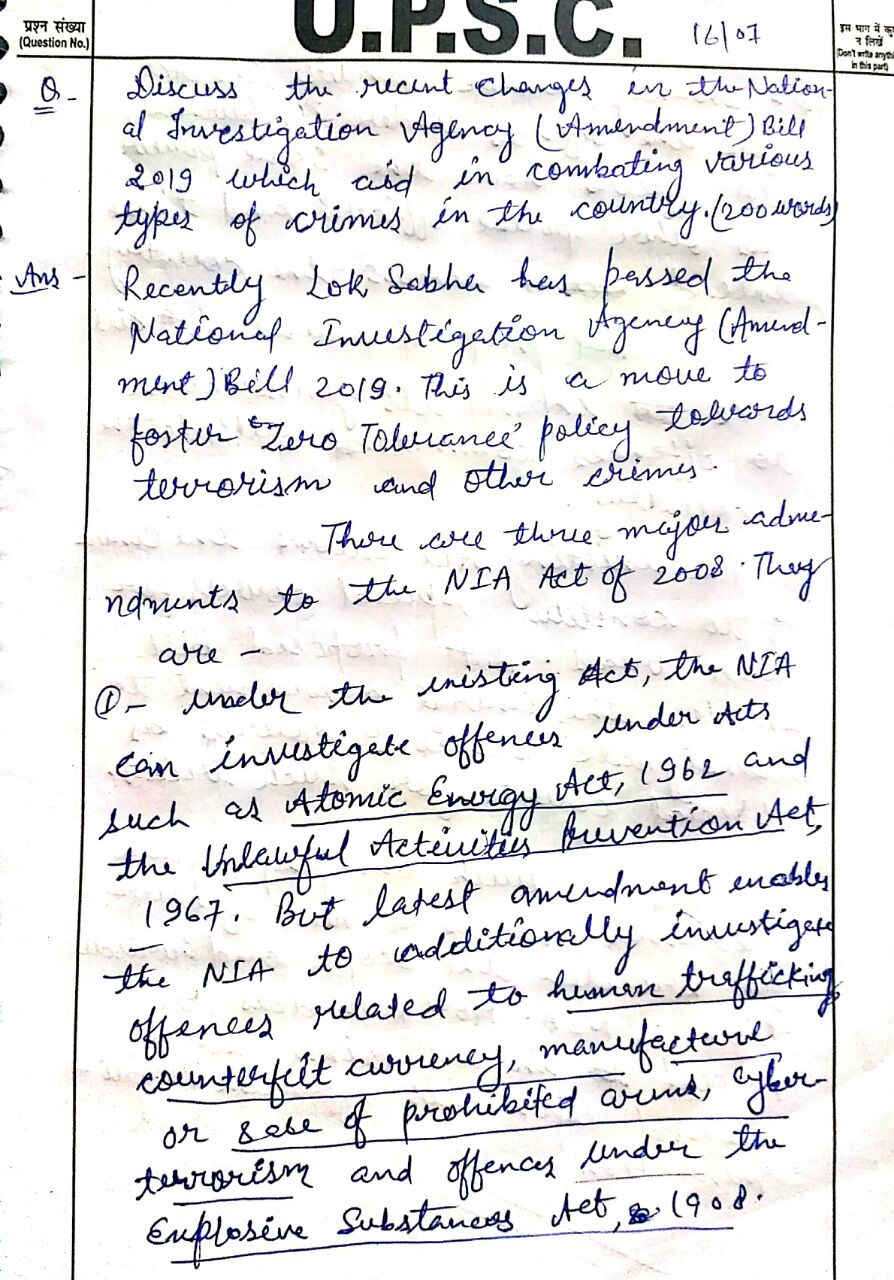 प्रश्न संख्या
(Question No.)
U.P.S.C.
16/07
इस भाग में कु
न लिखें
(Don't write anythi
in this part)
Q - Discuss the recent changes in the Nation-
al Investigation Agency (Amendment) Bill
2019 which aid in combating various
types of crimes in the country. (200 words)
Ans - Recently Lok Sabha has passed the
National Investigation Agency (Amend-
ment) Bill 2019. This is a move to
foster "Zero Tolerance' policy towards
terrorism and other crimes.
There are three major adme-
ndments to the NIA Act of 2008. They
are -
① - under the existing Act, the NIA
can investigate offences under Acts
such as Atomic Energy Act, 1962 and
the Unlawful Activities Prevention Act,
1967. But latest amendment enables
the NIA to additionally investigate
offences related to human trafficking,
counterfeit currency, manufacture
or sale of prohibited arms, cyber-
terrorism and offences under the
Explosive Substances Act, 1908.